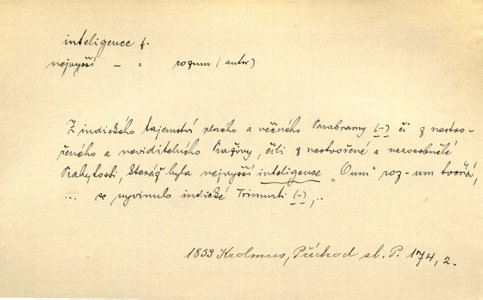 inteligence f.
nejvyšší – „ rozum (autor)
Z indického tajemství plného a věčného Parabramy (..) či z nestvo-
řeného a neviditelného Pražiny, čili z nestvořené a neosobnělé
Prabytosti, kteráž byla nejvyšší inteligence „Oum“ roz-um tvořící,
... se vyvinulo indické Trimurti (..),.
1853 Krolmus, Příchod sl. P. 174, 2.